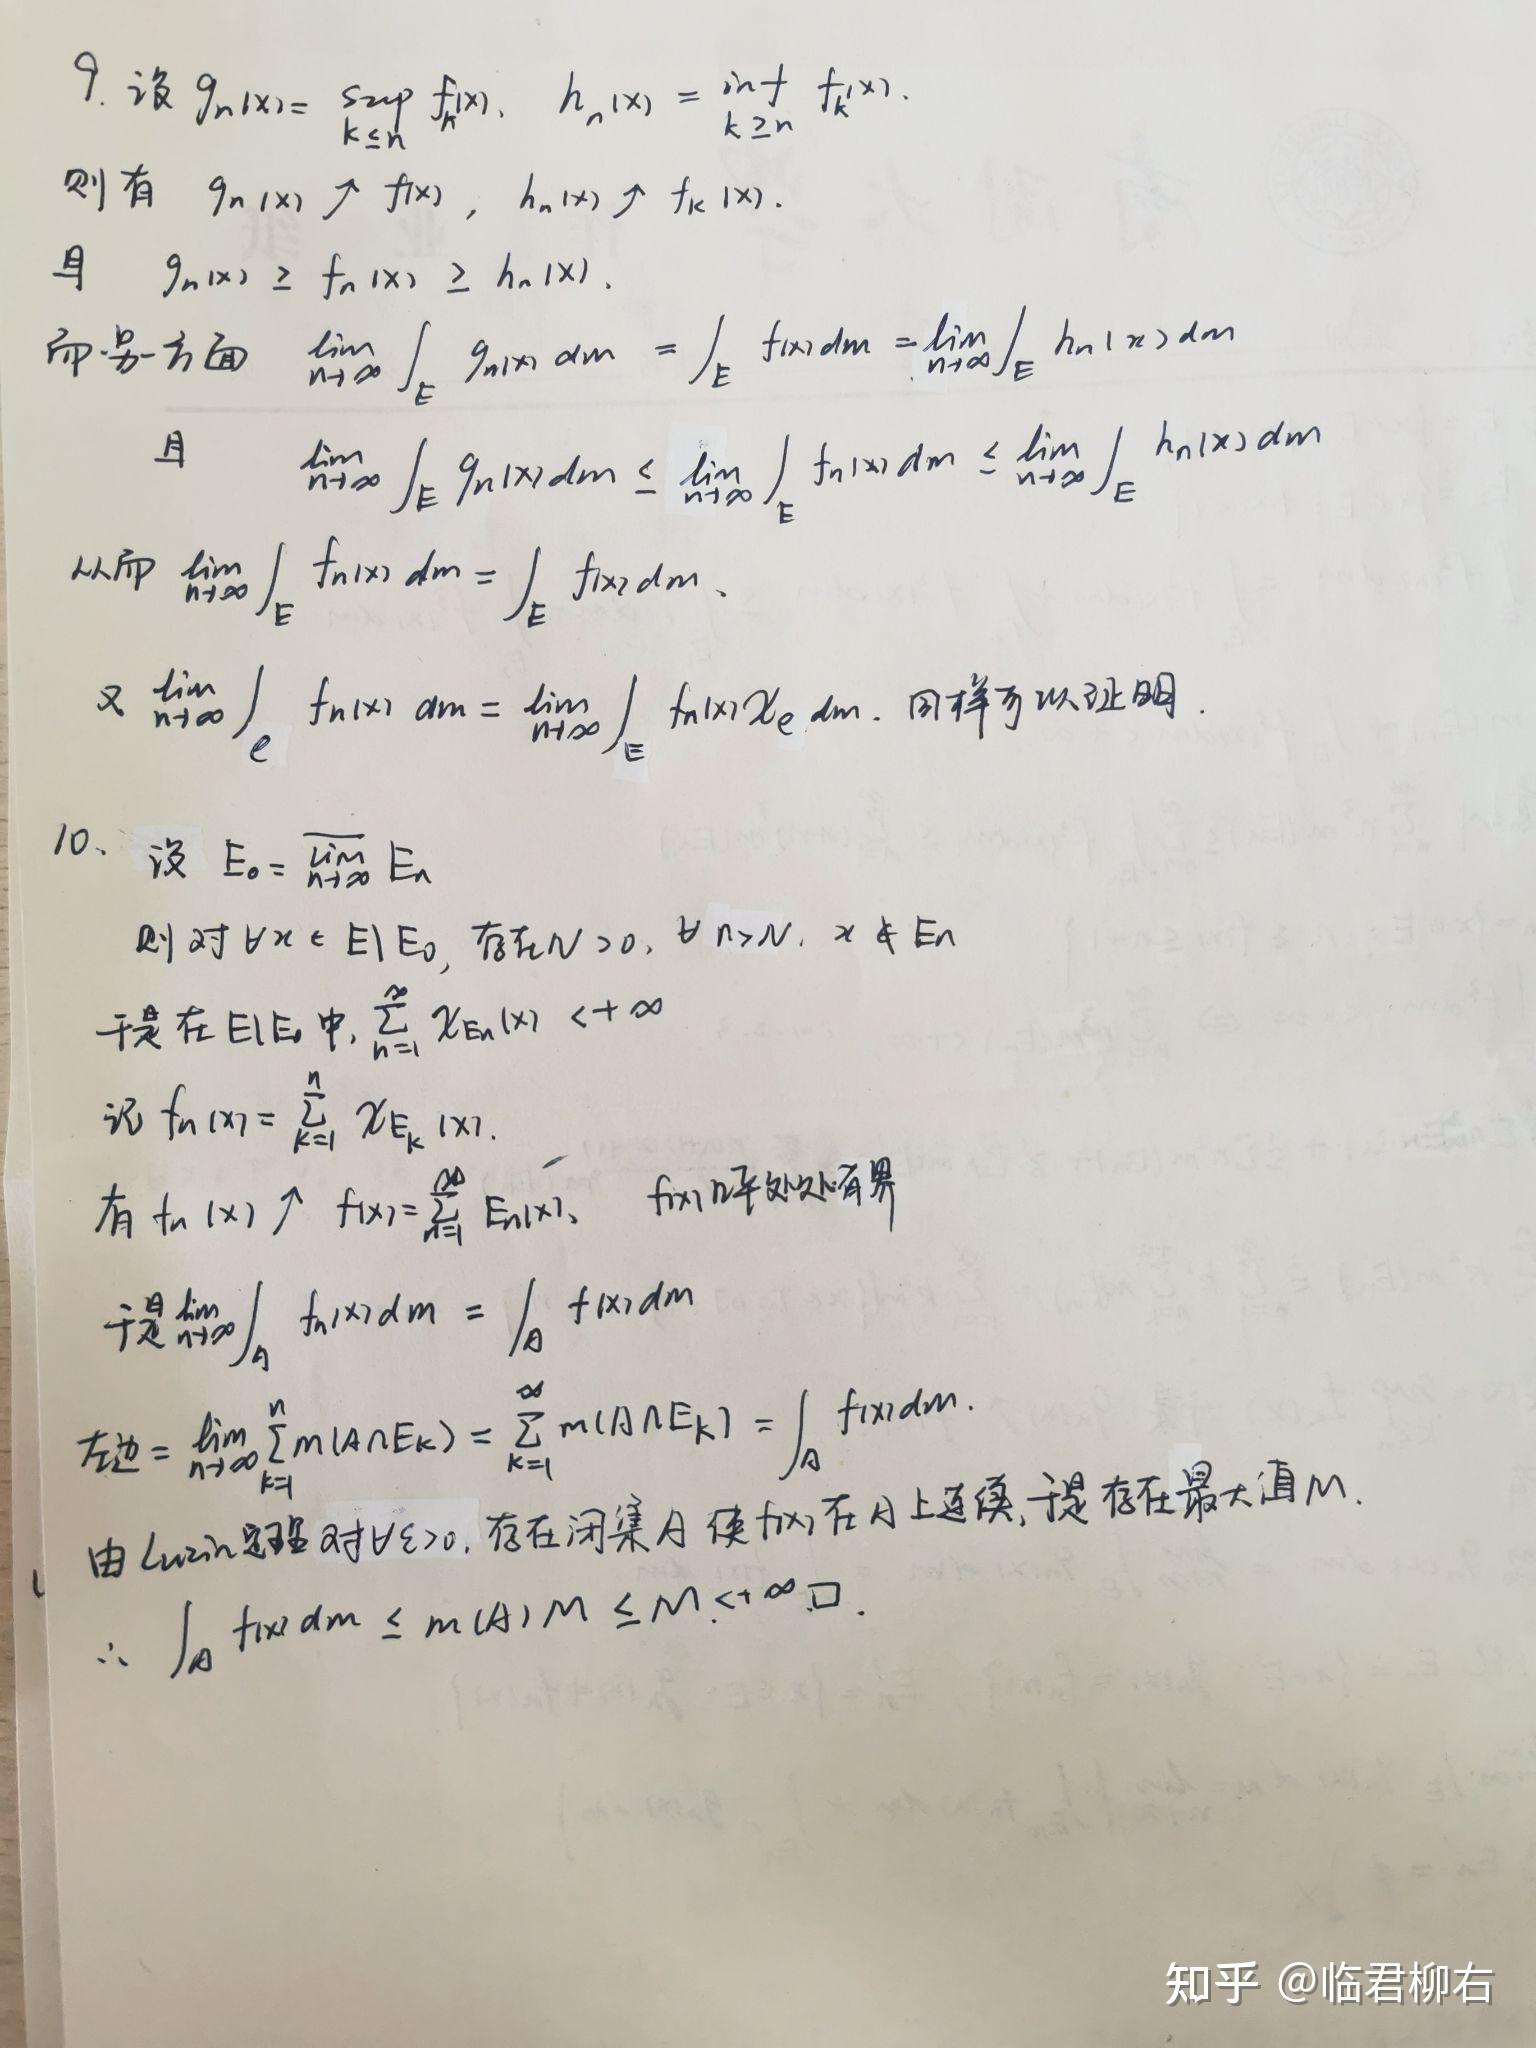 9. 设 gₙ(x) = sup_{k≤n} fₖ(x), hₙ(x) = inf_{k≥n} fₖ(x).
则有 gₙ(x) ↗ f(x), hₙ(x) ↗ fₖ(x).
且 gₙ(x) ≥ fₙ(x) ≥ hₙ(x).
而另一方面 lim_{n→∞} ∫_E gₙ(x) dm = ∫_E f(x) dm = lim_{n→∞} ∫_E hₙ(x) dm
且 lim_{n→∞} ∫_E gₙ(x) dm ≤ lim_{n→∞} ∫_E fₙ(x) dm ≤ lim_{n→∞} ∫_E hₙ(x) dm
从而 lim_{n→∞} ∫_E fₙ(x) dm = ∫_E f(x) dm.
又 lim_{n→∞} ∫_e fₙ(x) dm = lim_{n→∞} ∫_E fₙ(x) χ_e dm. 同样可以证明.
10. 设 E₀ = \overline{lim}_{n→∞} Eₙ
则对 ∀x ∈ E\E₀, 存在 N>0, ∀ n>N, x ∉ Eₙ
于是在 E\E₀ 中, ∑_{n=1}^{∞} χ_{Eₙ}(x) < +∞
记 fₙ(x) = ∑_{k=1}^{n} χ_{Eₖ}(x).
有 fₙ(x) ↗ f(x) = ∑_{n=1}^{∞} Eₙ(x), f(x) 几乎处处有界
于是 lim_{n→∞} ∫_A fₙ(x) dm = ∫_A f(x) dm
左边 = lim_{n→∞} ∑_{k=1}^{n} m(A∩Eₖ) = ∑_{k=1}^{∞} m(A∩Eₖ) = ∫_A f(x) dm.
由 Luzin 定理 对 ∀ε>0, 存在闭集 A 使 f(x) 在 A 上连续, 于是存在最大值 M.
∴ ∫_A f(x) dm ≤ m(A) M ≤ M < +∞ □.
知乎 @临君柳右